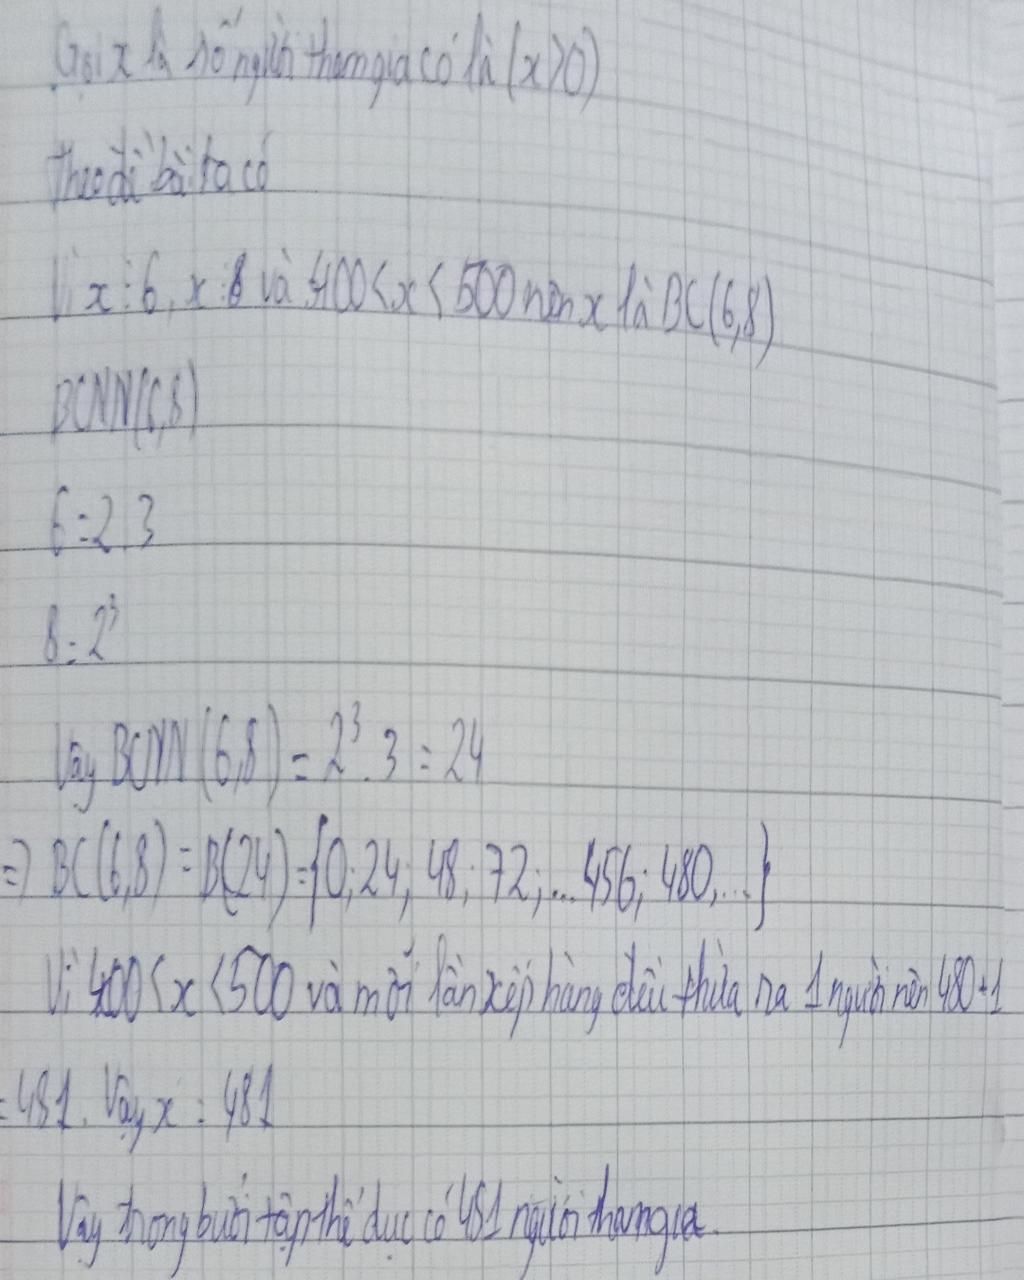 Gọi x là số người tham gia có là (x>0)
theo đề bài ta có
Vì x⋮6, x⋮8 và 400<x<500 nên x là BC(6,8)
BCNN(6,8)
6=2.3
8=2³
Vậy BCNN(6,8)=2³.3=24
=> BC(6,8)=B(24)={0;24;48;72;...456;480,...}
Vì 400<x<500 và mỗi lần xếp hàng đều thừa ra 1 người nên 480+1
=481. Vậy x=481
Vậy trong buổi tập thể dục có 481 người tham gia.